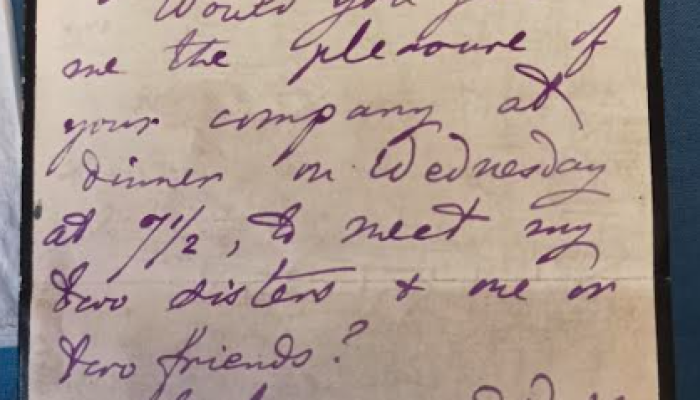 Would you
me the pleasure of
your company at
dinner on Wednesday
at 7½, to meet my
two sisters & one or
two friends?